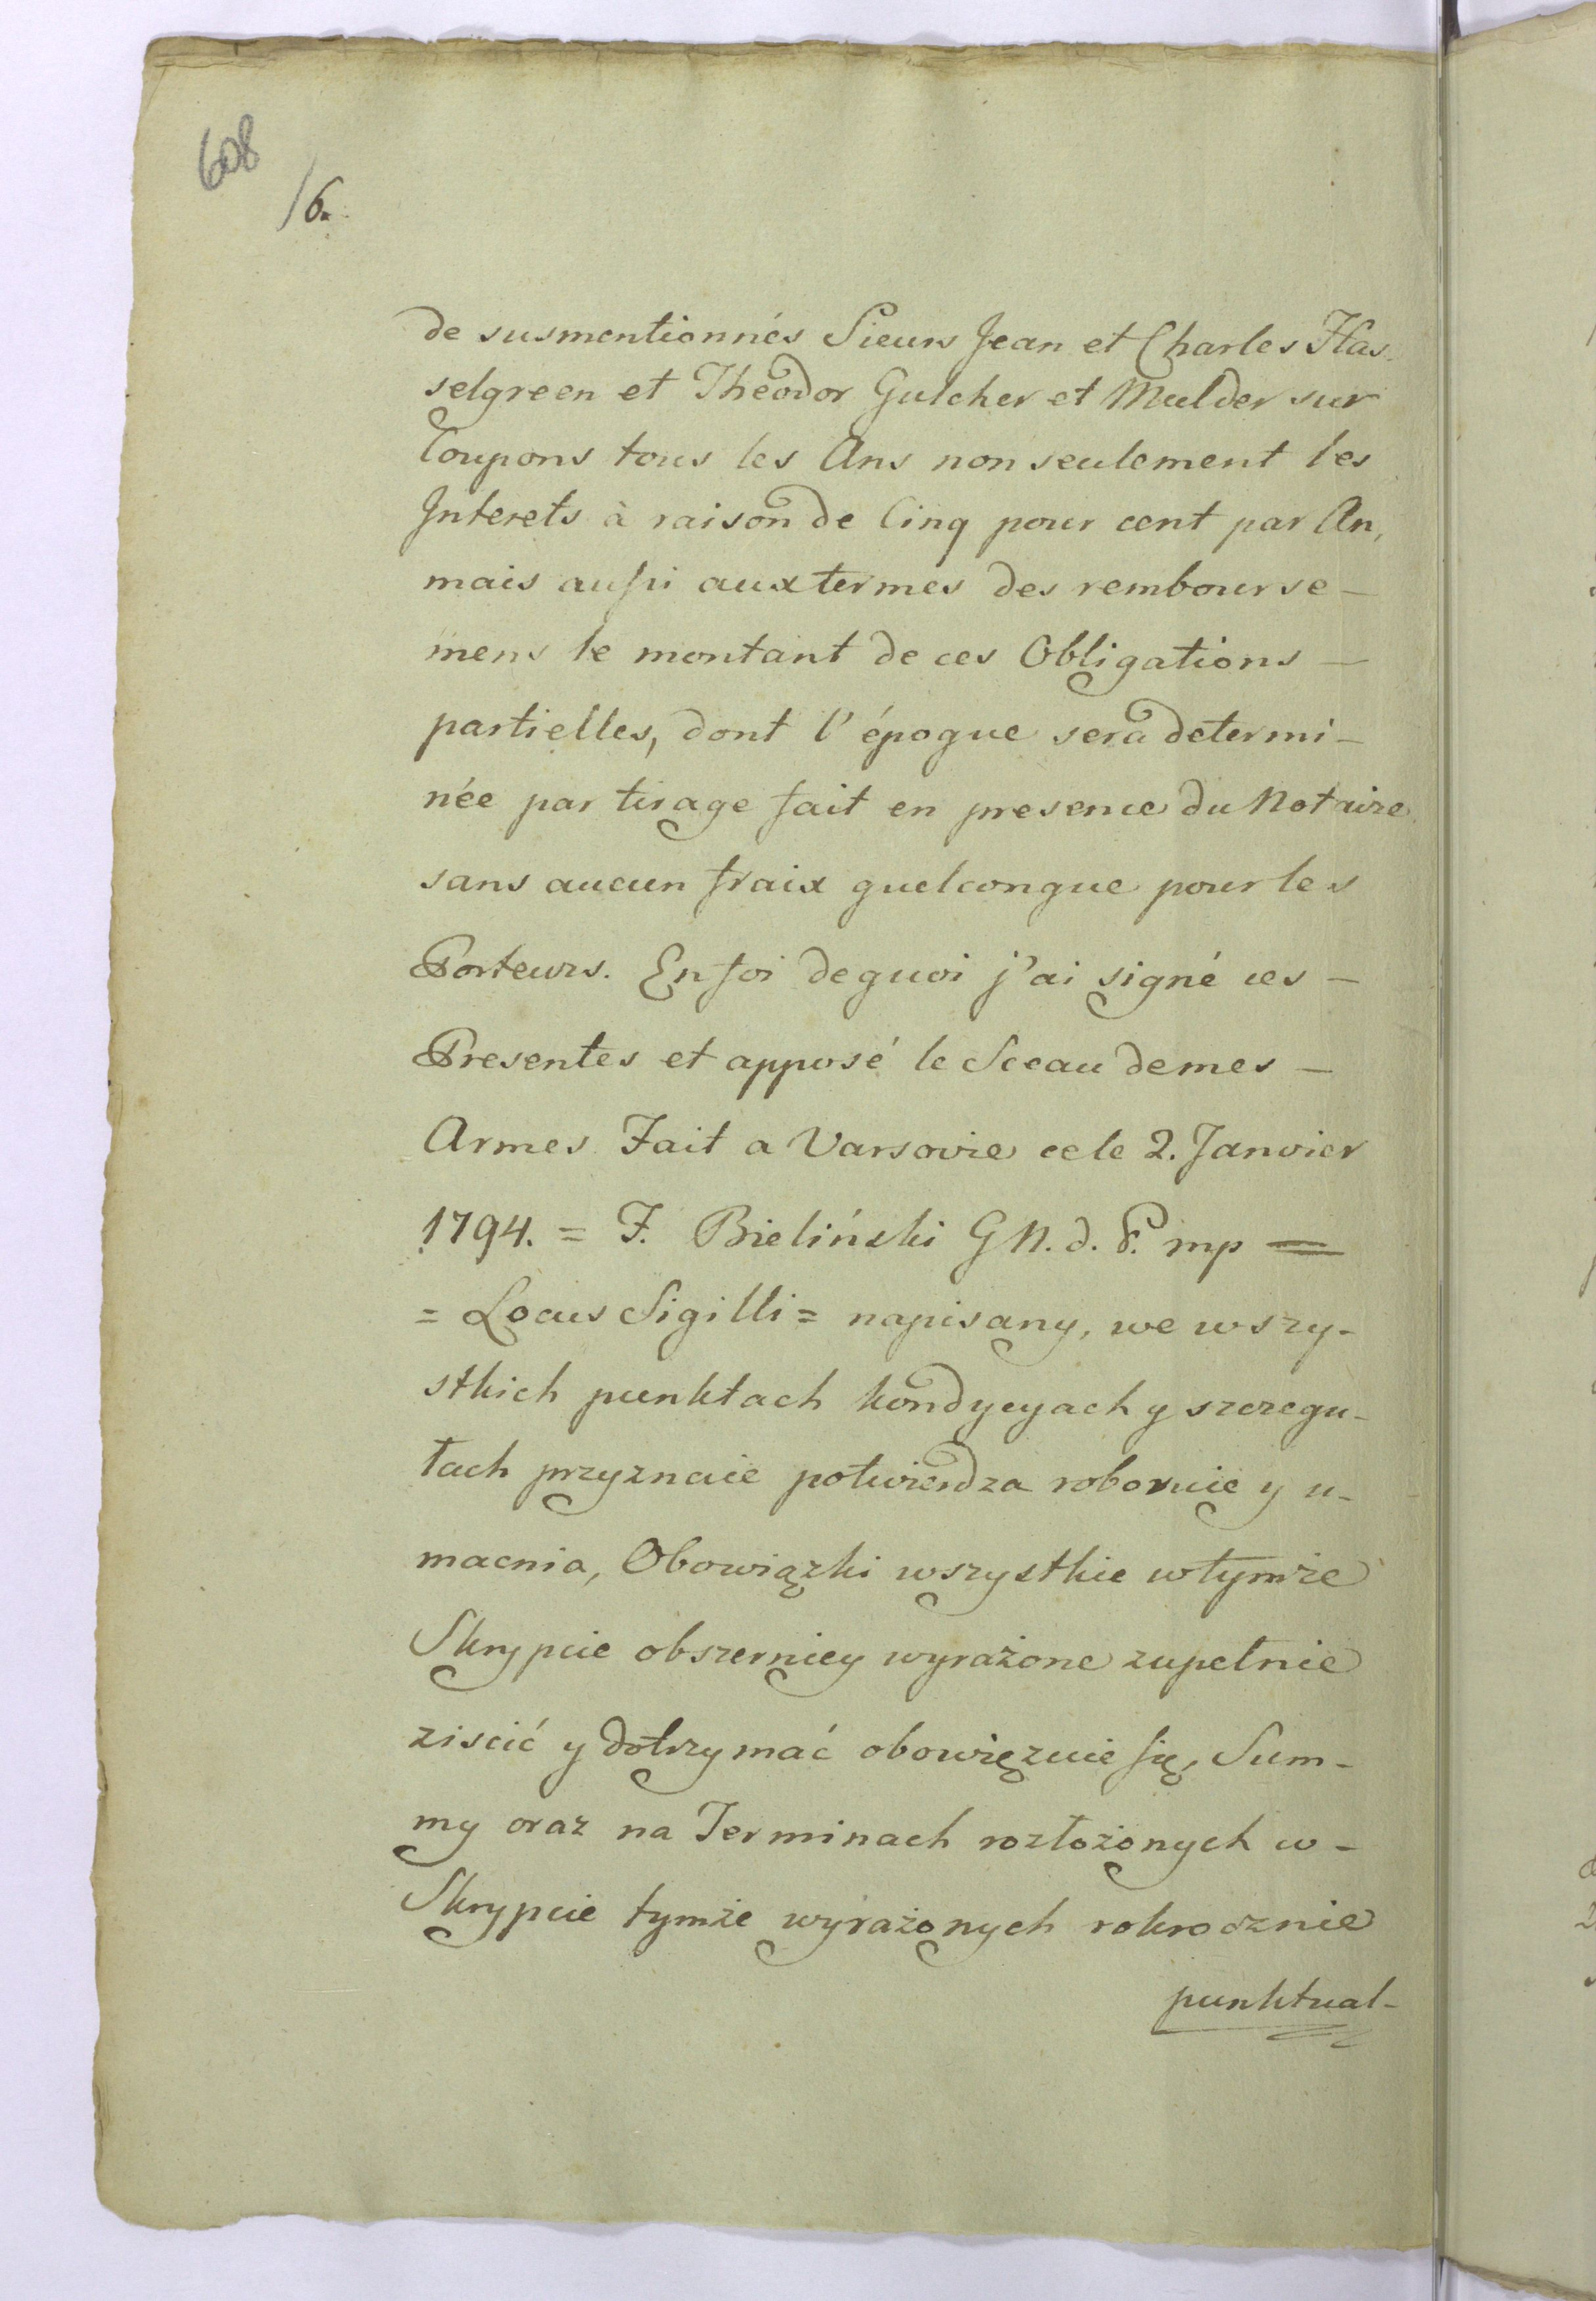 608
16.
de susmentionnés Sieurs Jean et Charles Has-
selgreen et Théodor Gulcher et Mulder sur
Coupons tous les Ans non seulement les
Interets à raison de Cinq pour cent par An,
mais aussi aux termes des rembourse-
mens le montant de ces Obligations -
partielles, dont l'époque sera determi-
née par tirage fait en presence du Notaire
sans aucun fraix quelconque pour les
Porteurs. En foi de quoi j'ai signé ces -
Presentes et apposé le Sceau de mes -
Armes Fait a Varsovie ce le 2. Janvier
1794. = F. Bieliński G N. d. P. mp =
= Locus Sigilli = napisany, we wszy-
stkich punktach kondycyach y szczegu-
łach przyznaie potwierdza roboruie y u-
macnia, Obowiązki wszystkie w tymże
Skrypcie obszerniey wyrażone zupełnie
ziscić y dotrzymać obowięzuie się, Sum-
my oraz na Terminach rozłożonych w -
Skrypcie tymże wyrażonych rokrocznie
punktual-